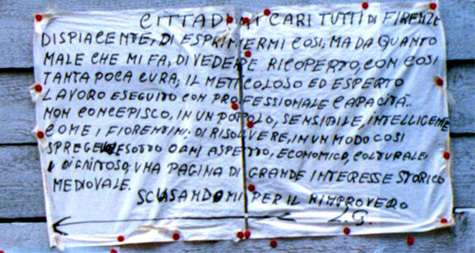 CITTADINI CARI TUTTI DI FIRENZE
DISPIACENTE, DI ESPRIMERMI COSI, MA DA QUANTO
MALE CHE MI FA, DI VEDERE RICOPERTO, CON COSI
TANTA POCA CURA, IL METICOLOSO ED ESPERTO
LAVORO ESEGUITO CON PROFESSIONALE CAPACITÀ.
NON CONCEPISCO, IN UN POPOLO, SENSIBILE, INTELLIGENTE
COME I FIORENTINI, DI RISOLVERE, IN UN MODO COSI
SOTTO OGNI ASPETTO, ECONOMICO, COLTURALE
DIGNITOSO, UNA PAGINA DI GRANDE INTERESSE STORICO
MEDIOVALE.
SCUSANDOMI PER IL RIMPROVERO